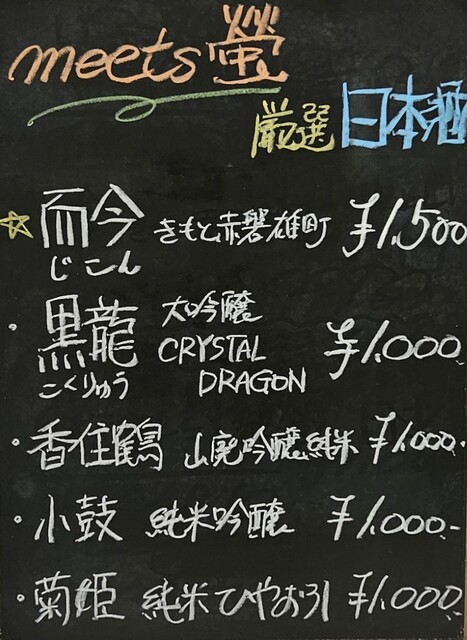 meets 螢
厳選 日本酒
☆ 而今 きもと赤磐雄町 ¥1,500
じこん
・黒龍 大吟醸 CRYSTAL DRAGON ¥1,000
こくりゅう
・香住鶴 山廃吟醸純米 ¥1,000-
・小鼓 純米吟醸 ¥1,000-
・菊姫 純米ひやおろし ¥1,000-